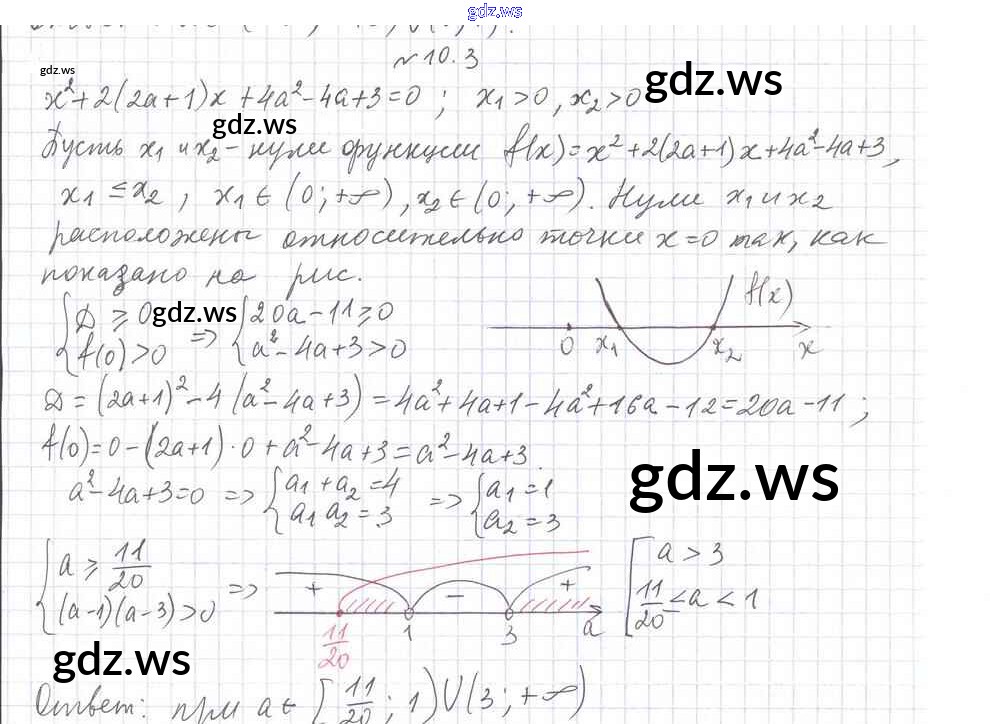 gdz.ws
№ 10.3
gdz.ws
x²+2(2a+1)x+4a²-4a+3=0 ; x₁>0, x₂>0 gdz.ws
gdz.ws
Пусть x₁ и x₂ - нули функции f(x)=x²+2(2a+1)x+4a²-4a+3,
x₁ ≤ x₂ , x₁ ∈ (0;+∞), x₂ ∈ (0;+∞). Нули x₁ и x₂
расположены относительно точки x=0 так, как
показано на рис.
{D ≥ 0 gdz.ws => {20a-11≥0
{f(0)>0 {a²-4a+3>0
f(x)
0 x₁ x₂ x
D = (2a+1)²-4(a²-4a+3) = 4a²+4a+1-4a²+16a-12=20a-11 ;
f(0)=0-(2a+1)·0+a²-4a+3=a²-4a+3.
a²-4a+3=0 => {a₁+a₂=4 => {a₁=1
{a₁a₂=3 {a₂=3
gdz.ws
{a ≥ 11/20 => [a > 3
{(a-1)(a-3)>0 [11/20 ≤ a < 1
+ - +
11/20 1 3 a
gdz.ws
Ответ: при a ∈ [11/20 ; 1)∪(3;+∞)